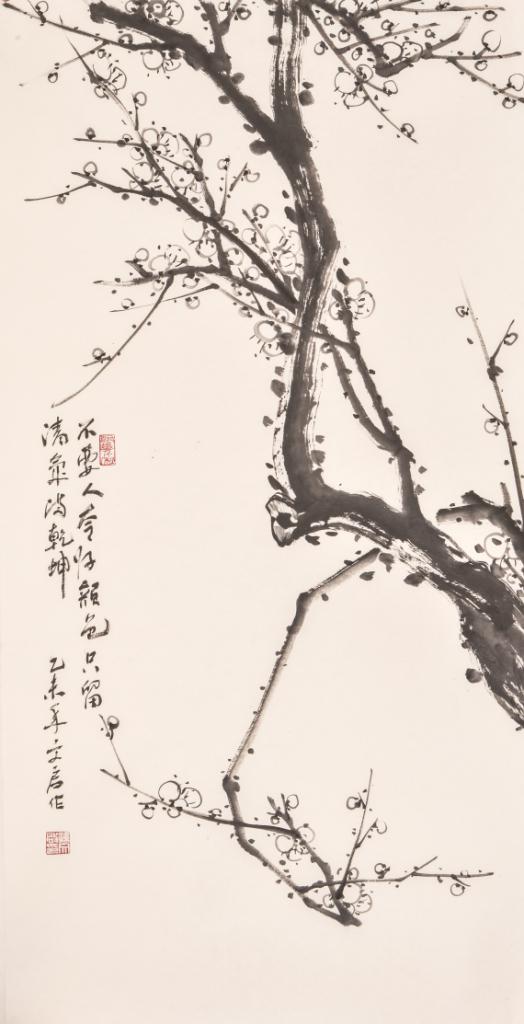 不要人夸好颜色只留
清气满乾坤
乙未年文启作